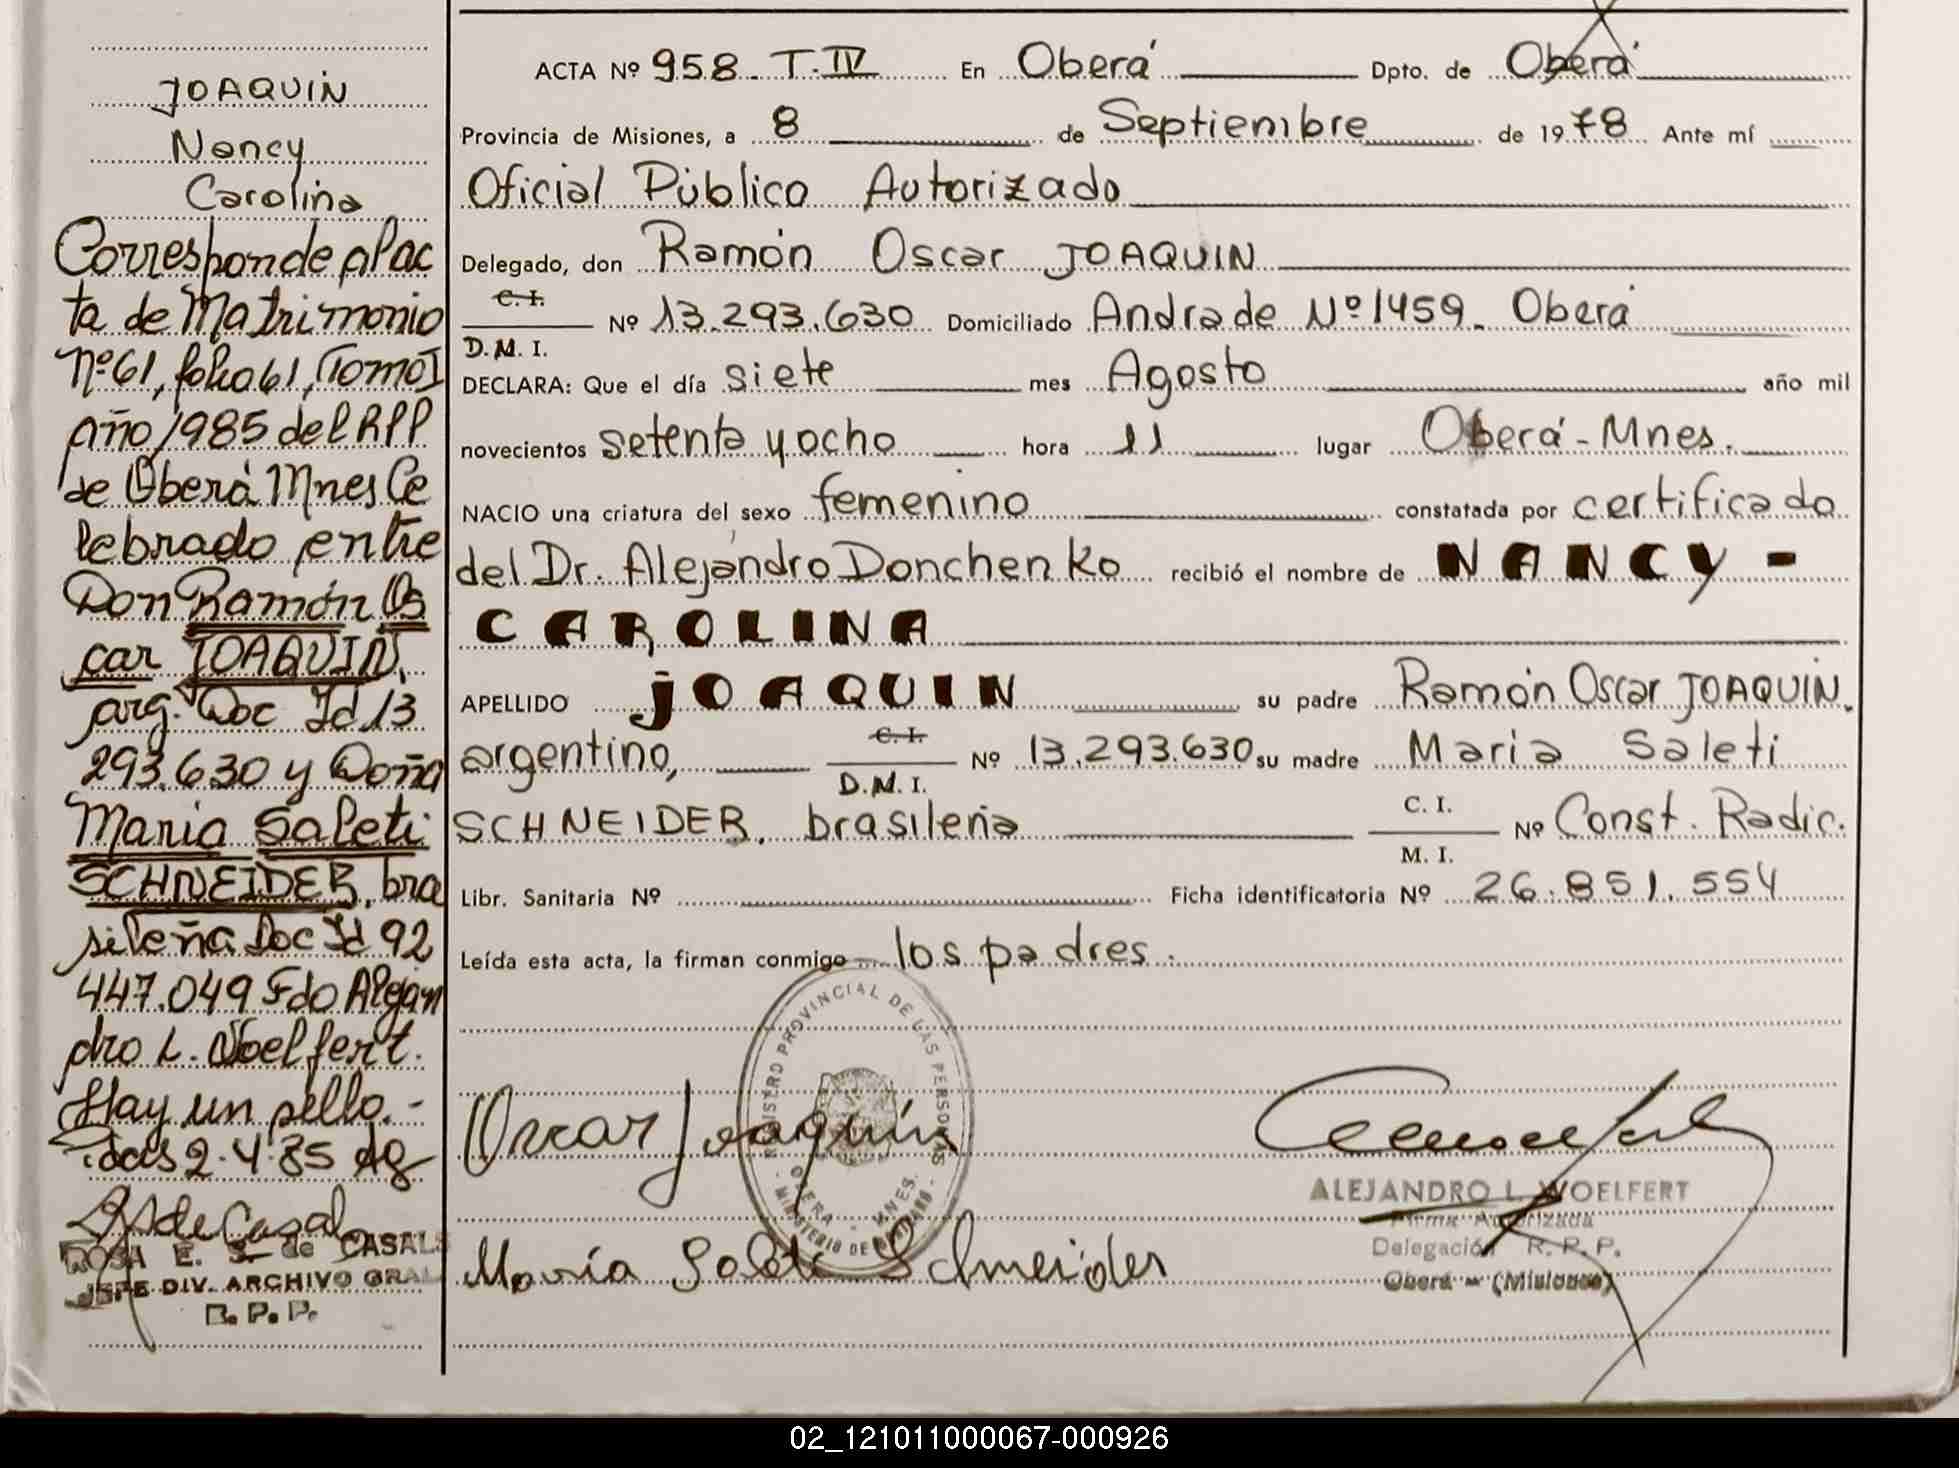 JOAQUIN
Nancy
Carolina
Corresponde al ac
ta de Matrimonio
Nº 61, folio 61, Tomo I
año 1985 del RPP
de Oberá Mnes Ce
lebrado entre
Don Ramón Os
car JOAQUIN,
arg. Doc Id 13
293.630 y Doña
Maria Saleti
SCHNEIDER, bra
sileña Doc Id 92
447.049 Fdo Alejan
dro L. Woelfert.
Hay un sello.-
Pdas 2.4.85
de Casal
ROSA E. S. de CASALS
JEFE DIV. ARCHIVO GRAL
R. P. P.
ACTA Nº 958. T. IV En Oberá Dpto. de Oberá
Provincia de Misiones, a 8 de Septiembre de 1978 Ante mí
Oficial Público Autorizado
Delegado, don Ramón Oscar JOAQUIN
C. I.
Nº 13.293.630 Domiciliado Andrade Nº 1459. Oberá
D. M. I.
DECLARA: Que el día siete mes Agosto año mil
novecientos setenta y ocho hora 11 lugar Oberá - Mnes.
NACIO una criatura del sexo femenino constatada por certificado
del Dr. Alejandro Donchenko recibió el nombre de NANCY -
CAROLINA
APELLIDO JOAQUIN su padre Ramón Oscar JOAQUIN.
argentino, C. I. Nº 13.293.630 su madre Maria Saleti
D. M. I.
SCHNEIDER. brasileña C. I. Nº Const. Radic.
M. I.
Libr. Sanitaria Nº Ficha identificatoria Nº 26.851.554
Leída esta acta, la firman conmigo los padres.
REGISTRO PROVINCIAL DE LAS PERSONAS
OBERA - MNES.
MINISTERIO DE GOBIERNO
Oscar Joaquín
María Saleti Schneider
ALEJANDRO L. WOELFERT
Firma Autorizada
Delegación R. P. P.
Oberá - (Misiones)
02_121011000067-000926